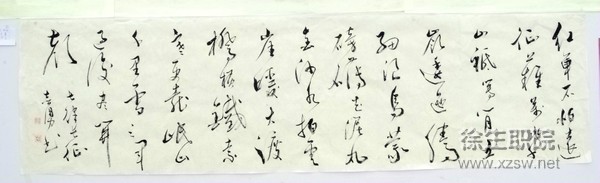 紅軍不怕遠
征難萬水千
山祗等閒五
嶺逶迤騰
細浪烏蒙
磅礴走泥丸
金沙水拍雲
崖暖大渡
橋橫鐵索
寒更喜岷山
千里雪三軍
過後盡開
顏
七律長征
書
徐生职院
www.xzsw.net